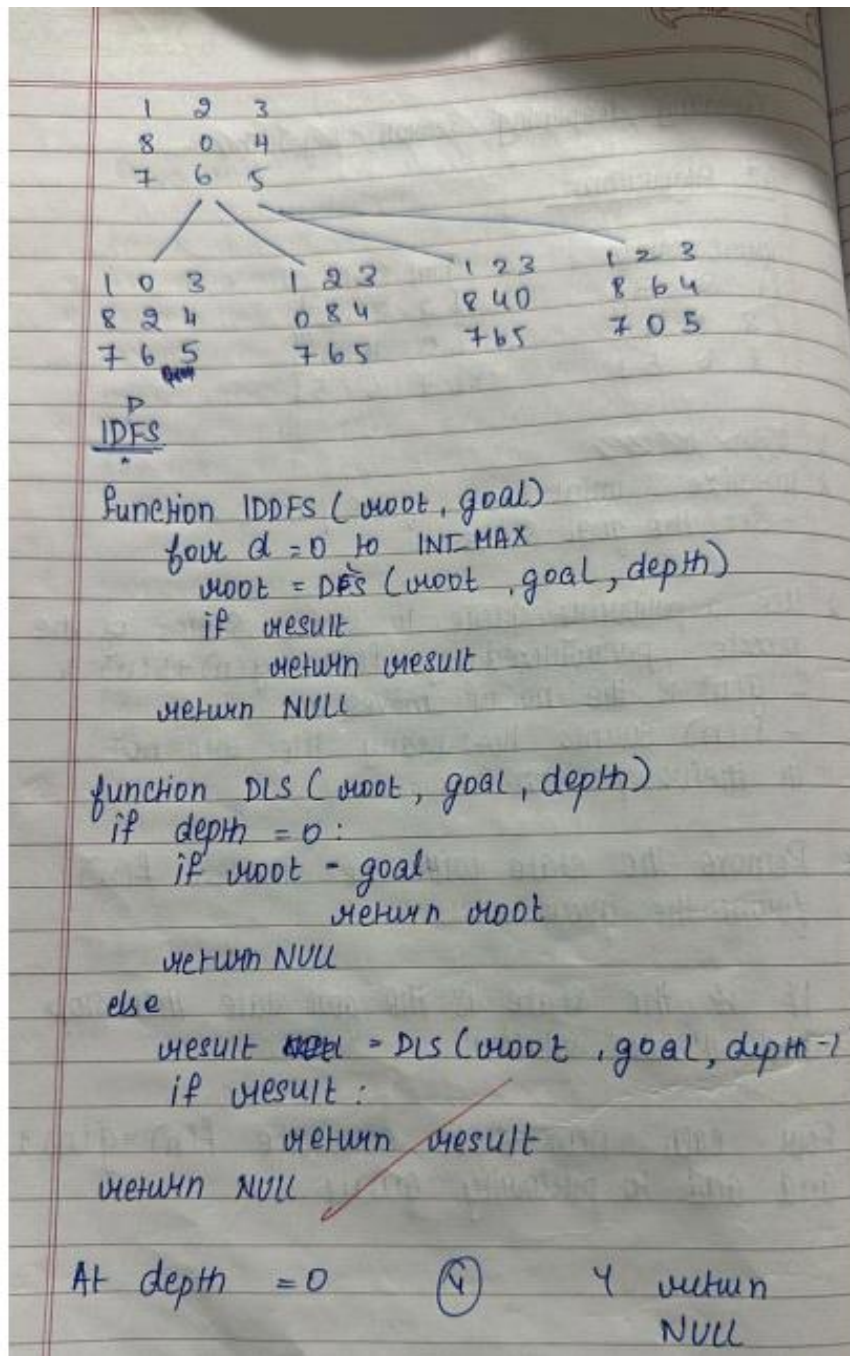 1 2 3
8 0 4
7 6 5
1 0 3 1 2 3 1 2 3 1 2 3
8 2 4 0 8 4 8 4 0 8 6 4
7 6 5 7 6 5 7 6 5 7 0 5
D
IDFS
function IDDFS (root, goal)
for d = 0 to INT_MAX
root = DLS (root, goal, depth)
if result
return result
return NULL
function DLS (root, goal, depth)
if depth = 0:
if root = goal
return root
return NULL
else
result = DLS (root, goal, depth-1
if result:
return result
return NULL
At depth = 0 Y return
NULL